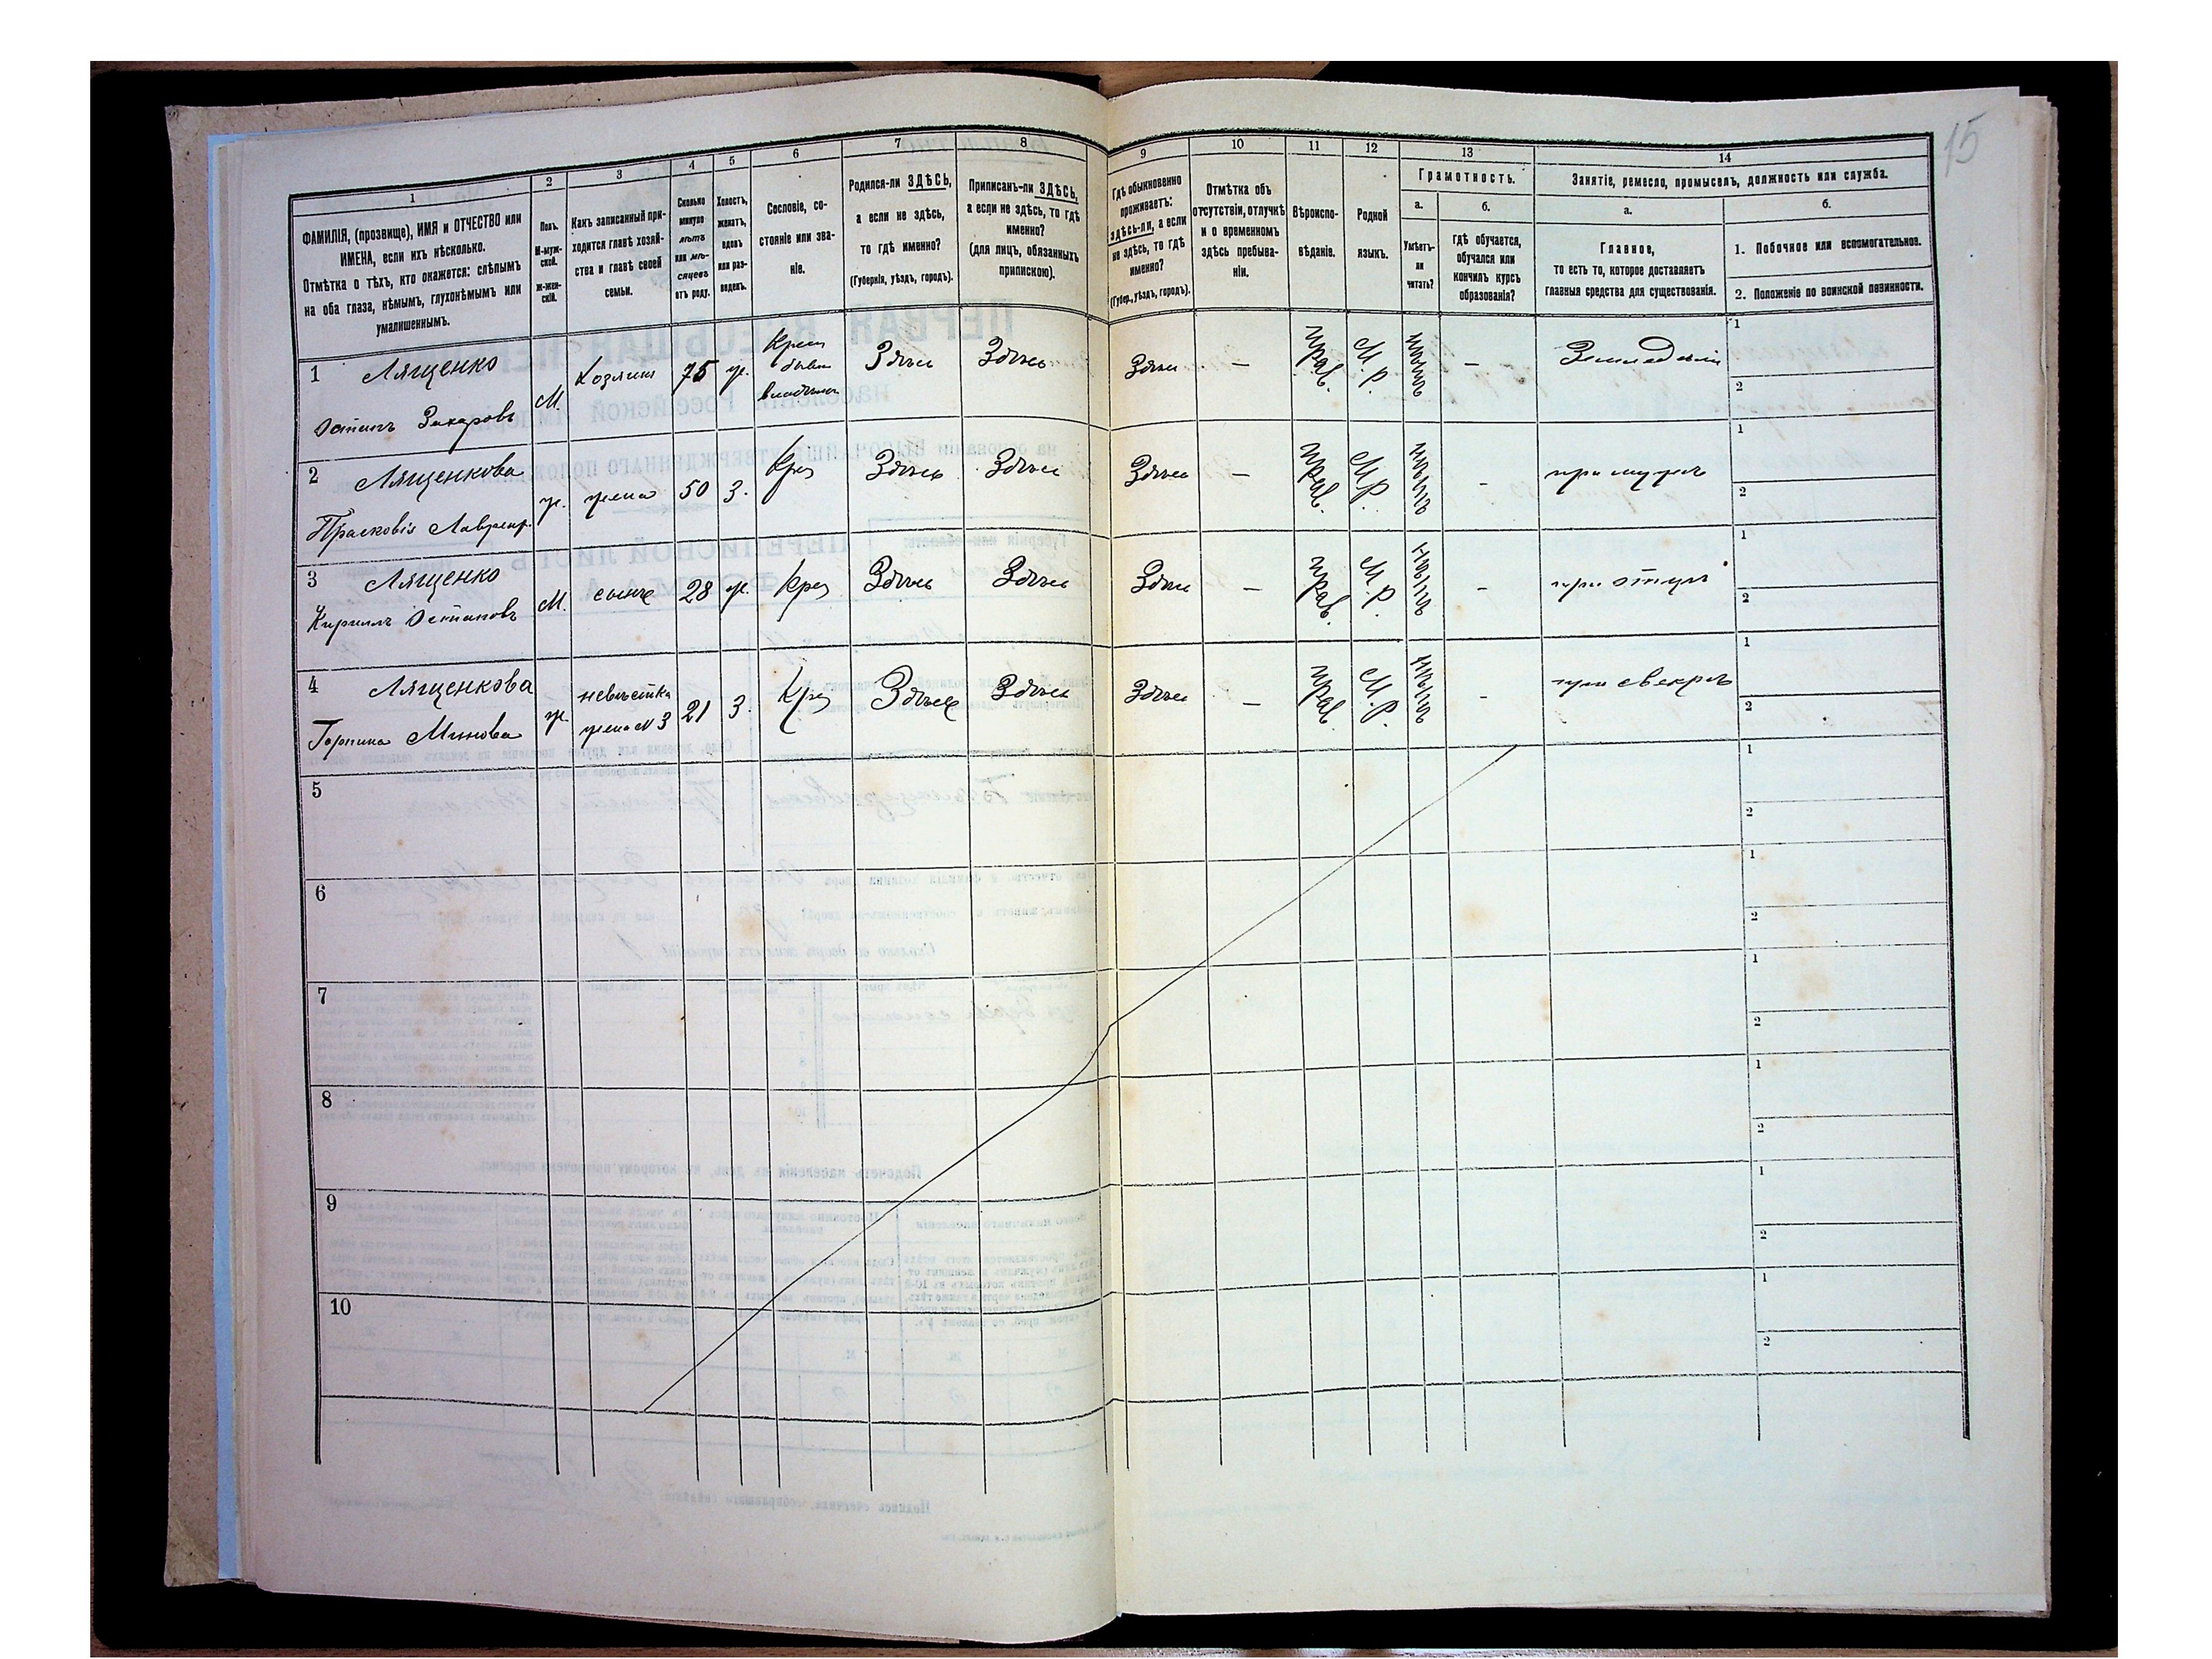 15
1
2
3
4
5
6
7
8
9
10
11
12
13
14
ФАМИЛІЯ, (прозвище), ИМЯ и ОТЧЕСТВО или
ИМЕНА, если ихъ нѣсколько.
Отмѣтка о тѣхъ, кто окажется: слѣпымъ
на оба глаза, нѣмымъ, глухонѣмымъ или
умалишеннымъ.
Полъ.
М-муж-
ской.
Ж-жен-
скій.
Какъ записанный при-
ходится главѣ хозяй-
ства и главѣ своей
семьи.
Сколько
минуло
лѣтъ
или мѣ-
сяцевъ
отъ роду.
Холостъ,
женатъ,
вдовъ
или раз-
веденъ.
Сословіе, со-
стояніе или зва-
ніе.
Родился-ли ЗДѢСЬ,
а если не здѣсь,
то гдѣ именно?
(Губернія, уѣздъ, городъ).
Приписанъ-ли ЗДѢСЬ,
а если не здѣсь, то гдѣ
именно?
(для лицъ, обязанныхъ
припискою).
Гдѣ обыкновенно
проживаетъ:
здѣсь-ли, а если
не здѣсь, то гдѣ
именно?
(Губер., уѣздъ, городъ).
Отмѣтка объ
отсутствіи, отлучкѣ
и о временномъ
здѣсь пребыва-
ніи.
Вѣроиспо-
вѣданіе.
Родной
языкъ.
Грамотность.
а.
Умѣетъ-
ли
читать?
б.
гдѣ обучается,
обучался или
кончилъ курсъ
образованія?
Занятіе, ремесло, промыселъ, должность или служба.
а.
Главное,
то есть то, которое доставляетъ
главныя средства для существованія.
б.
1. Побочное или вспомогательное.
2. Положеніе по воинской повинности.
1 Лященко
Остапъ Захаровъ
М.
Хозяинъ
75
ж.
Крест
бывш
владѣльч
Здѣсь
Здѣсь
Здѣсь
—
прав.
М.Р.
нѣтъ
—
Земледѣліе
1
2
2 Лященкова
Прасковія Лаврент.
ж.
жена
50
з.
Крес
Здѣсь
Здѣсь
Здѣсь
—
прав.
М.Р.
нѣтъ
-
при мужѣ
1
2
3 Лященко
Кириллъ Остаповъ
М.
сынъ
28
ж.
Крес
Здѣсь
Здѣсь
Здѣсь
—
прав.
М.Р.
нѣтъ
-
при отцѣ
1
2
4 Лященкова
Горпина Минова
ж.
невѣстка
жена №3
21
З.
Крес
Здѣсь
Здѣсь
Здѣсь
—
прав.
М.Р.
нѣтъ
-
при свекрѣ
1
2
5
1
2
6
1
2
7
1
2
8
1
2
9
1
2
10
1
2